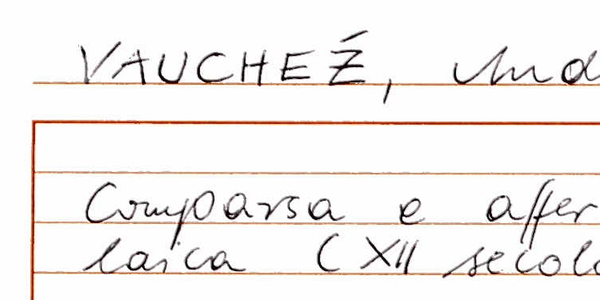 VAUCHEZ,
Comparsa e affer
laica (XII secolo